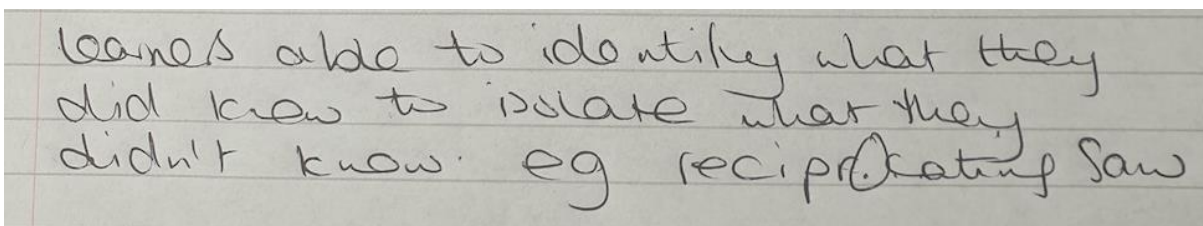 learners able to identify what they
did know to isolate what they
didn't know. eg reciprocating Saw